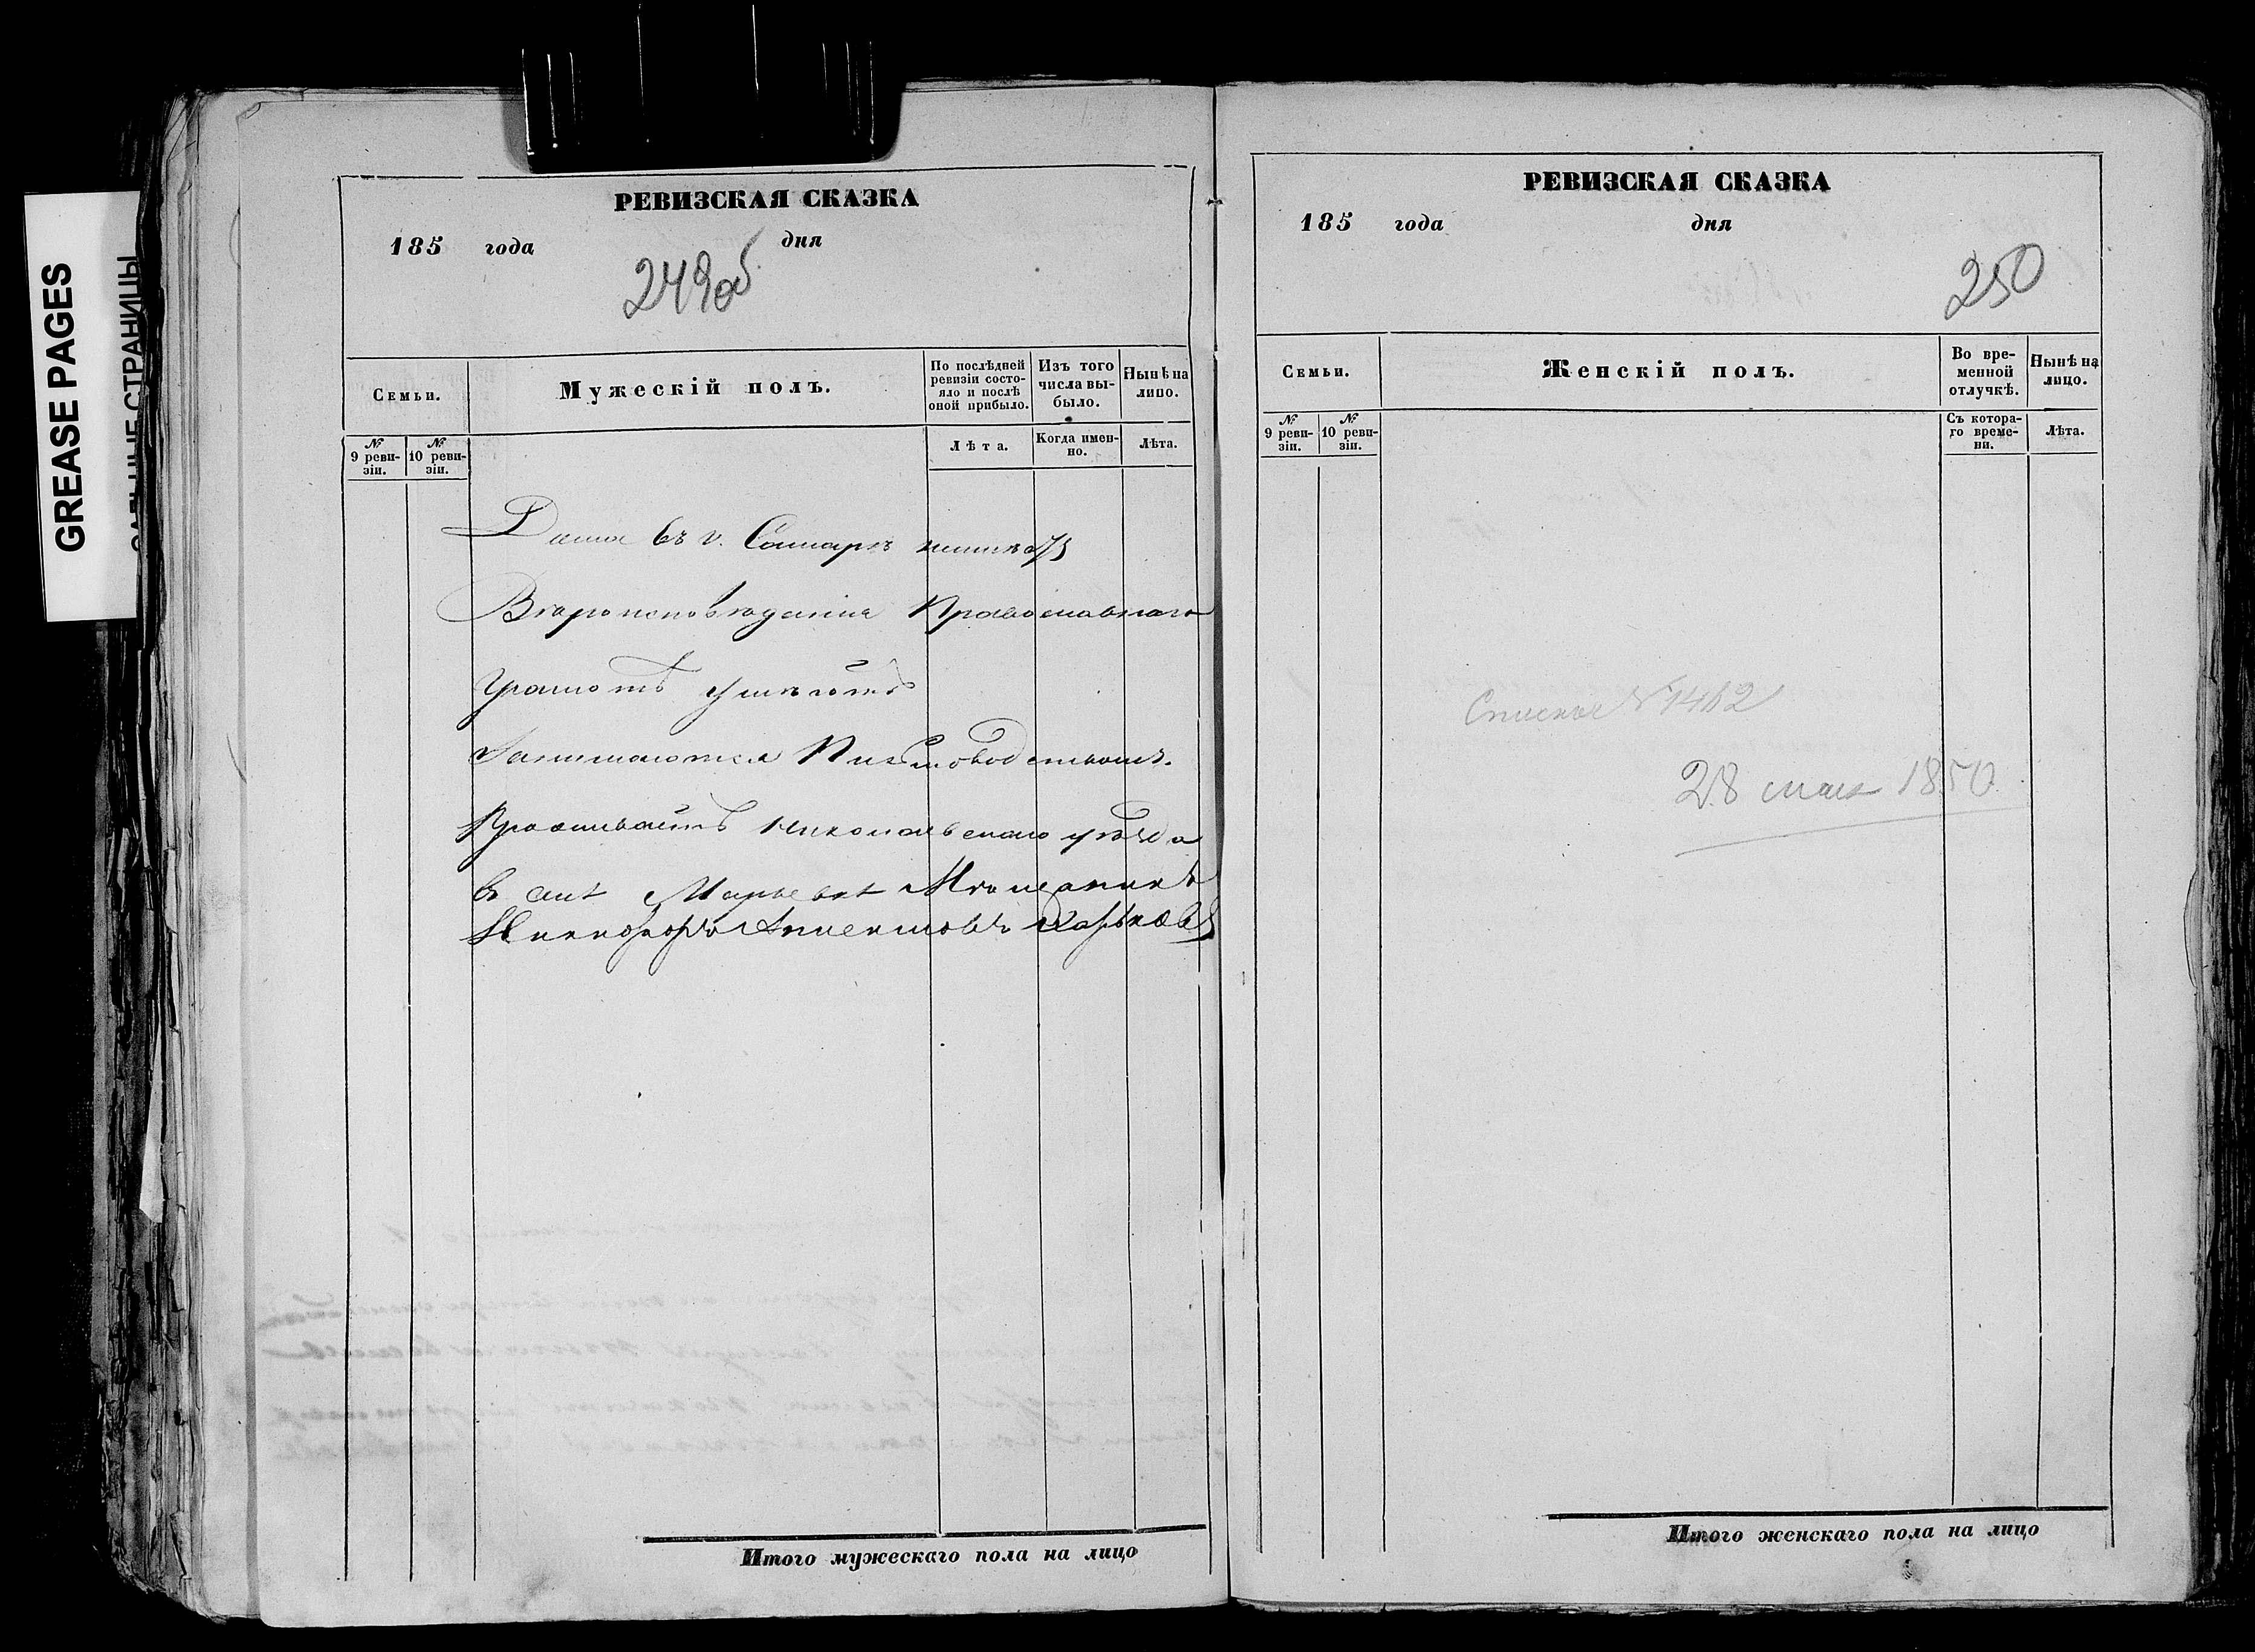 GREASE PAGES
РЕВИЗСКАЯ СКАЗКА
185 года дня
249об
Семьи.
Мужескій полъ.
По послѣдней ревизіи состояло и послѣ оной прибыло.
Изъ того числа выбыло.
Нынѣ на лицо.
№ 9 ревизіи.
№ 10 ревизіи.
Лѣта.
Когда именно.
Лѣта.
въ г. Самарѣ
Вѣроисповѣданія Православнаго
Грамотѣ умѣетъ
Занимается Письмоводствомъ.
Проживаетъ Николаевскаго уѣзда
въ селѣ Марьевкѣ Мѣщанинъ
Никифоръ Харьковъ
Итого мужескаго пола на лицо
РЕВИЗСКАЯ СКАЗКА
185 года дня
250
Семьи.
Женскій полъ.
Во временной отлучкѣ.
Нынѣ на лицо.
№ 9 ревизіи.
№ 10 ревизіи.
Съ котораго времени.
Лѣта.
28 мая 1850
Итого женскаго пола на лицо